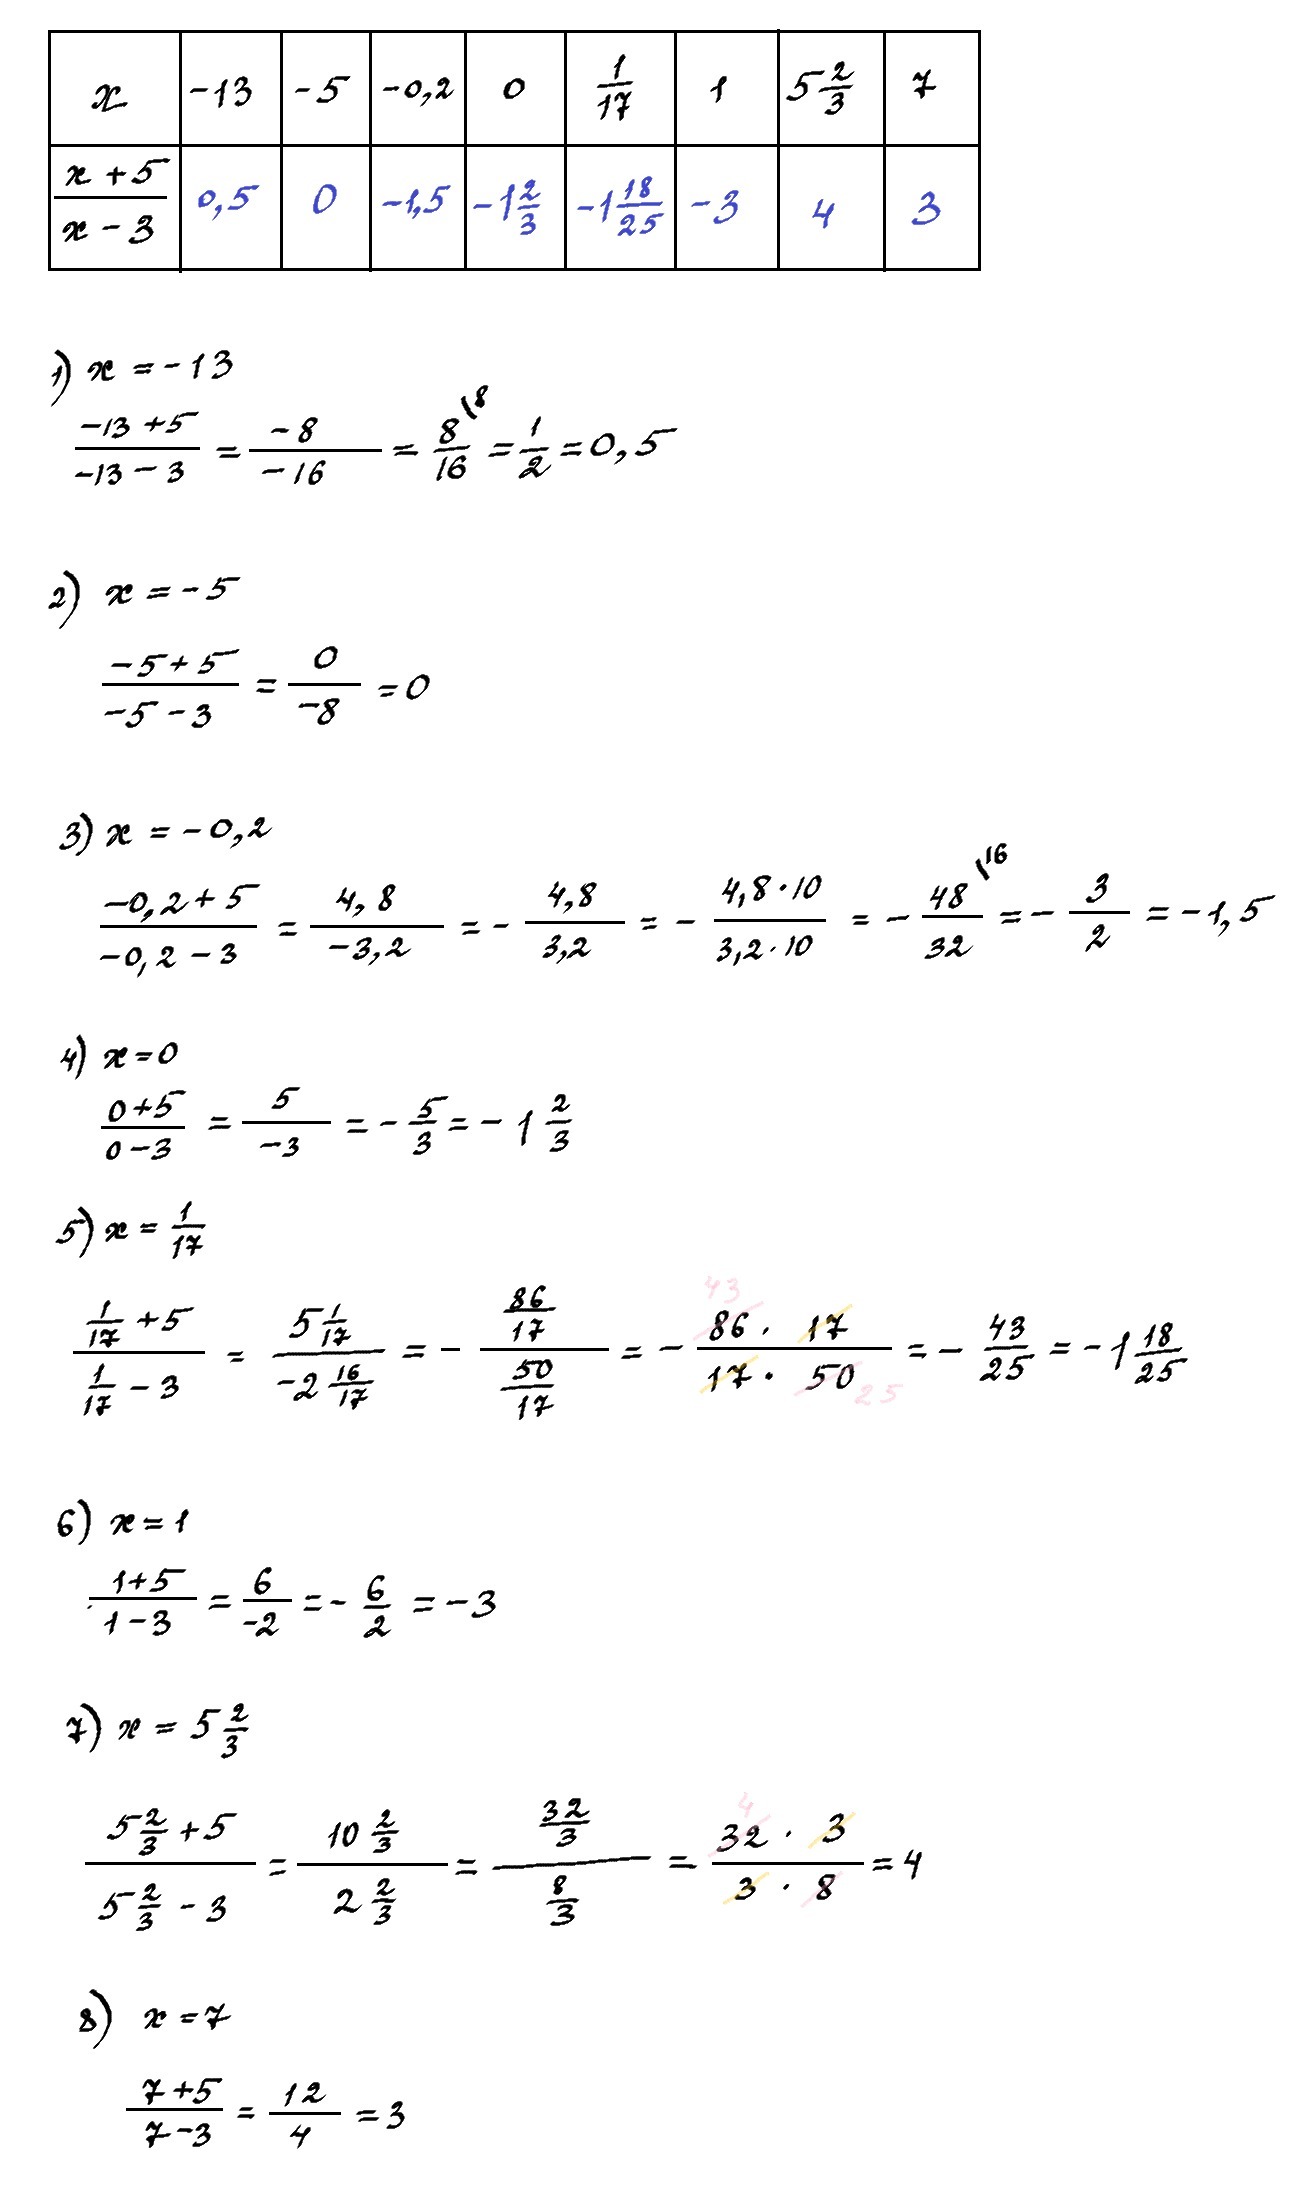 x -13 -5 -0,2 0 1/17 1 5 2/3 7
(x + 5)/(x - 3) 0,5 0 -1,5 -1 2/3 -1 18/25 -3 4 3
1) x = -13
(-13 + 5)/(-13 - 3) = (-8)/(-16) = 8/16 |8 = 1/2 = 0,5
2) x = -5
(-5 + 5)/(-5 - 3) = 0/(-8) = 0
3) x = -0,2
(-0,2 + 5)/(-0,2 - 3) = 4,8/(-3,2) = - 4,8/3,2 = - (4,8 · 10)/(3,2 · 10) = - 48/32 |16 = - 3/2 = -1,5
4) x = 0
(0 + 5)/(0 - 3) = 5/(-3) = - 5/3 = - 1 2/3
5) x = 1/17
(1/17 + 5)/(1/17 - 3) = (5 1/17)/(-2 16/17) = - (86/17)/(50/17) = - (86 · 17)/(17 · 50) 43 25 = - 43/25 = - 1 18/25
6) x = 1
(1 + 5)/(1 - 3) = 6/(-2) = - 6/2 = -3
7) x = 5 2/3
(5 2/3 + 5)/(5 2/3 - 3) = (10 2/3)/(2 2/3) = (32/3)/(8/3) = (32 · 3)/(3 · 8) 4 = 4
8) x = 7
(7 + 5)/(7 - 3) = 12/4 = 3